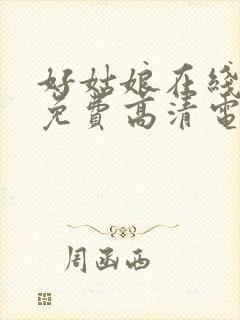 好姑娘在线
免费高清电
周函西